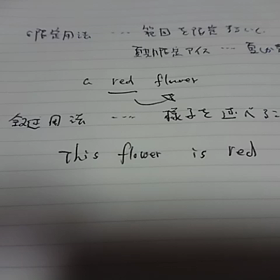 限定用法 … 範囲を限定すること
期間限定アイス …
a red flower
叙述用法 … 様子を述べるこ
This flower is red